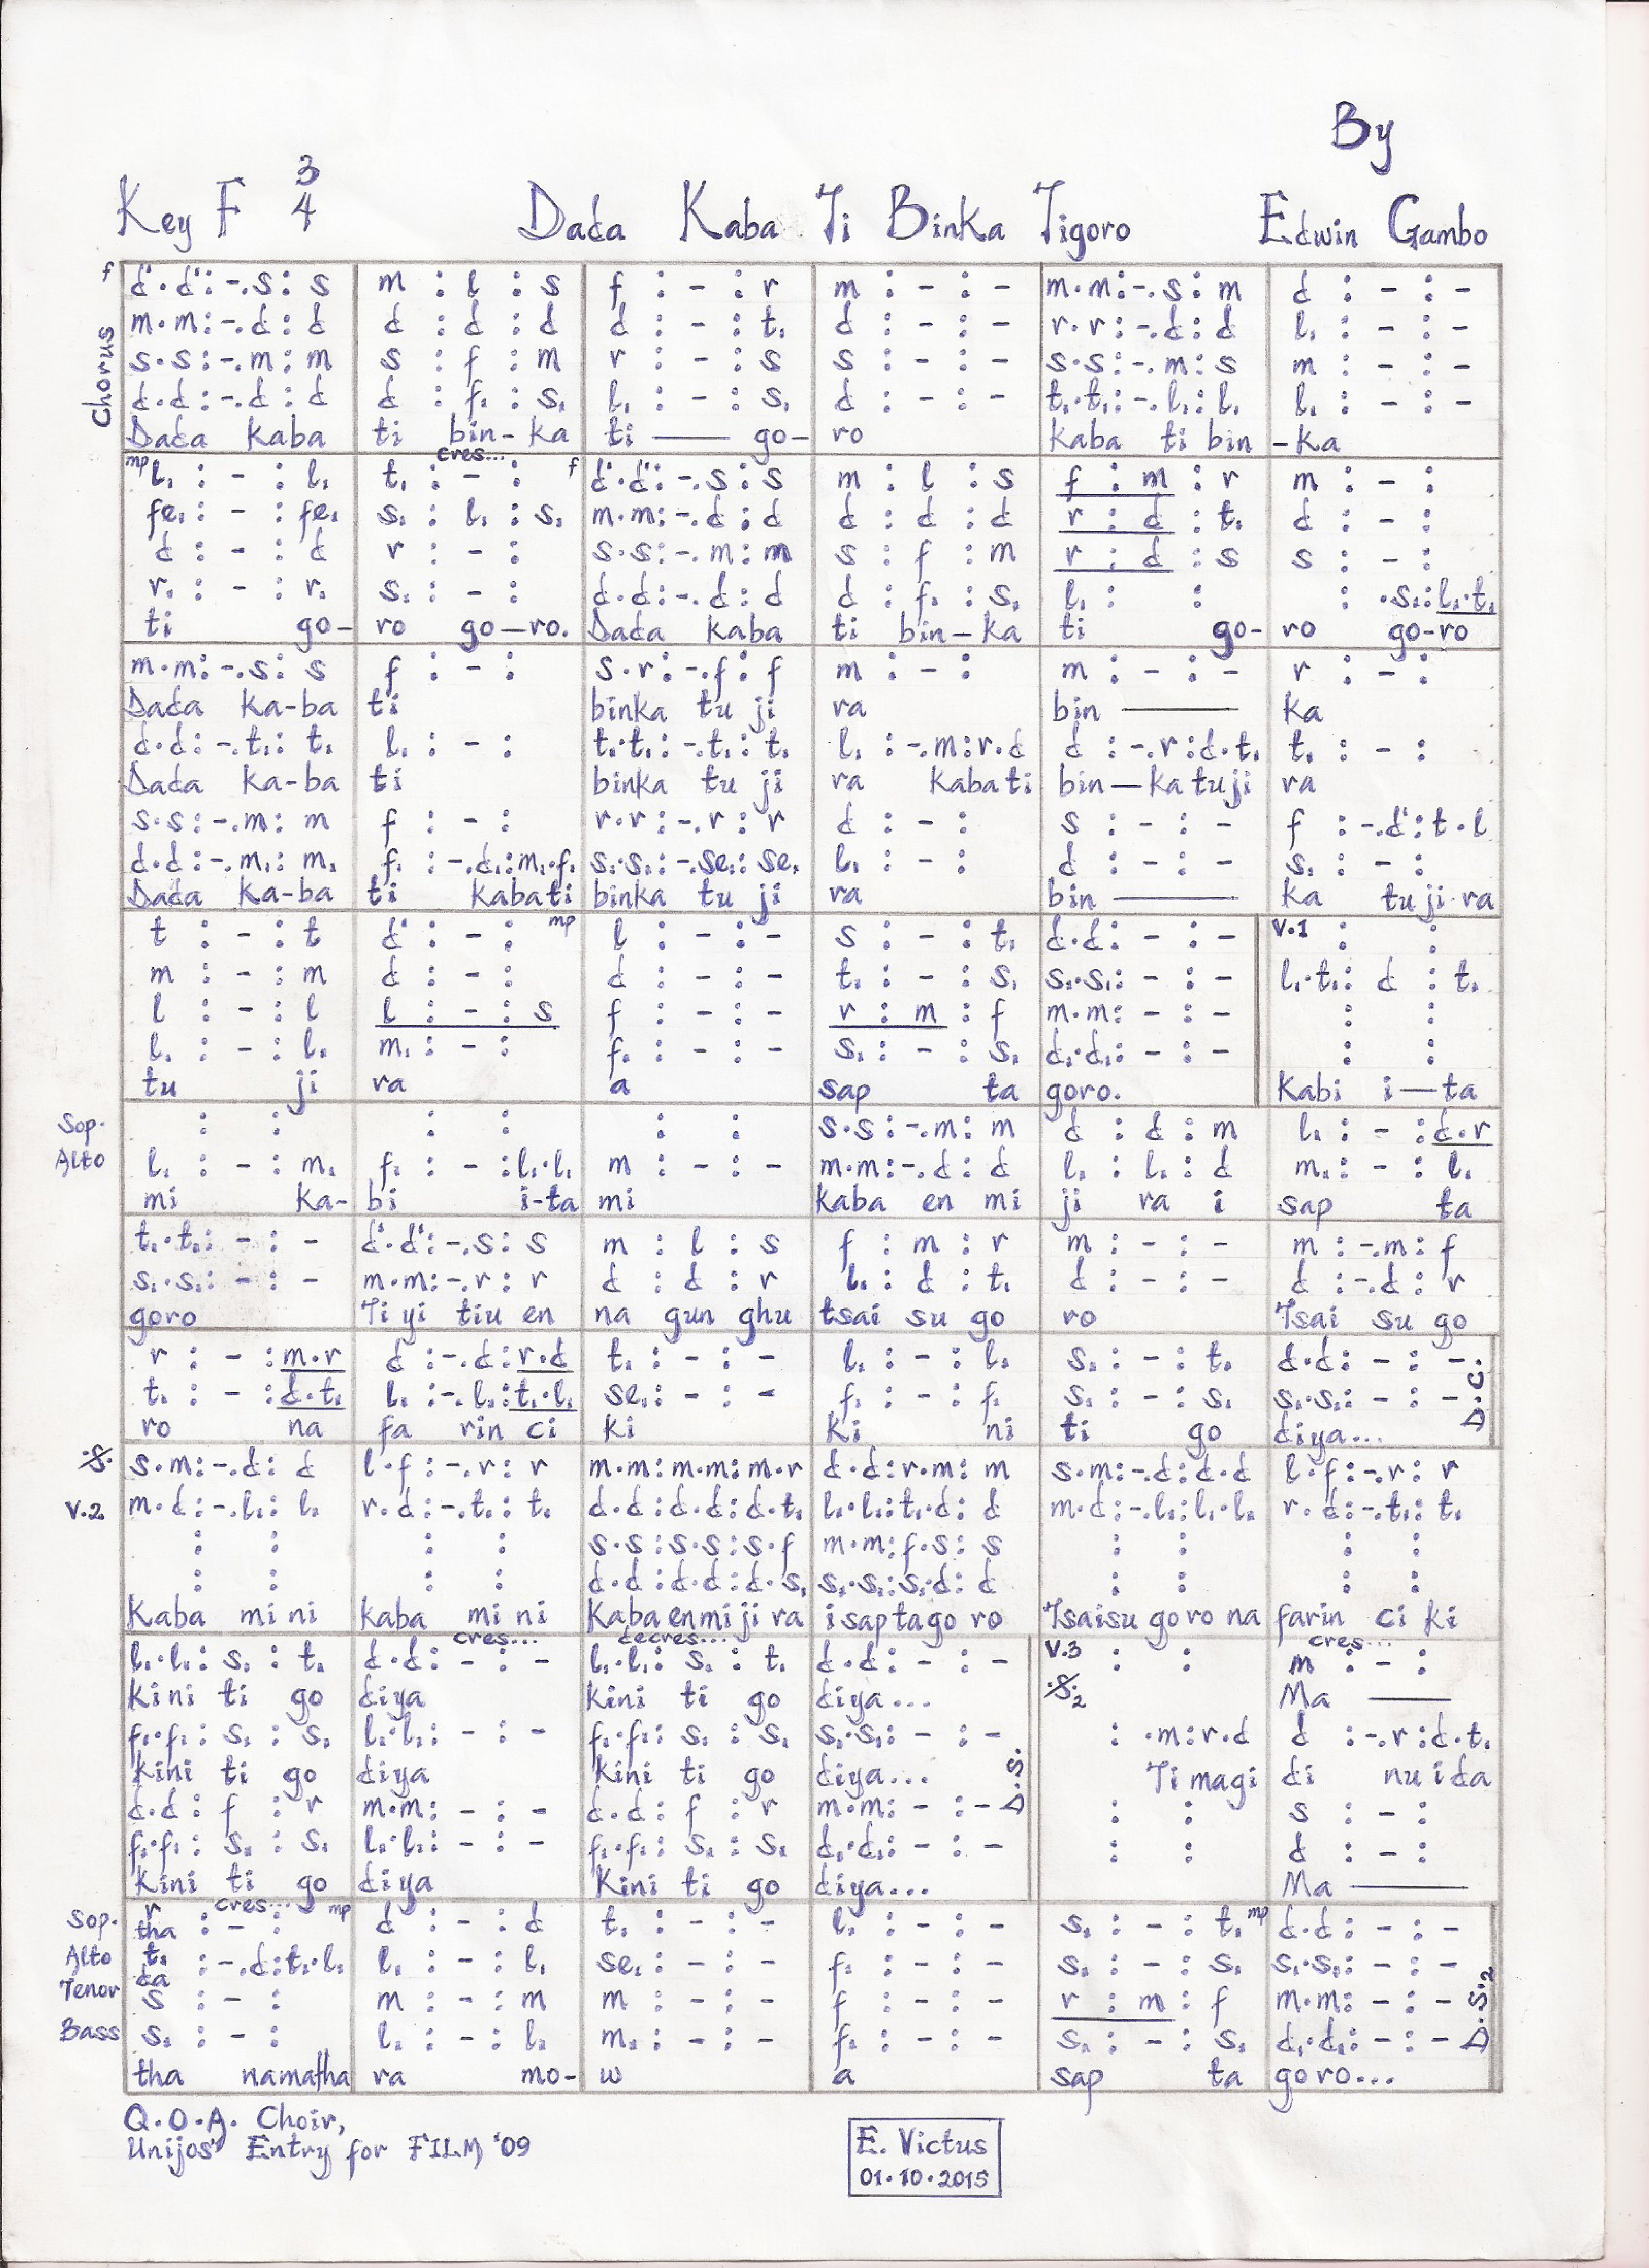 By
Key F 3/4 Dada Kaba Ti Binka Tigoro Edwin Gambo
Chorus
f d'.d':-.s:s | m :l :s | f :- :r | m :- :- | m.m:-.s:m | d :- :-
m.m:-.d:d | d :d :d | d :- :t, | d :- :- | r.r:-.d:d | l, :- :-
s.s:-.m:m | s :f :m | r :- :s | s :- :- | s.s:-.m:s | m :- :-
d.d:-.d:d | d :f, :s, | l, :- :s, | d :- :- | t,.t,:-.l,:l, | l, :- :-
Dada kaba | ti bin-ka | ti — go- | ro | kaba ti bin | -ka
cres...
mp l, :- :l, | t, :- : | f d'.d':-.s:s | m :l :s | f :m :r | m :- :
fe, :- :fe, | s, :l, :s, | m.m:-.d:d | d :d :d | r :d :t, | d :- :
d :- :d | r :- : | s.s:-.m:m | s :f :m | r :d :s | s :- :
r, :- :r, | s, :- : | d.d:-.d:d | d :f, :s, | l, : : | : .s,:l,.t,
ti go- | ro go-ro. | Dada kaba | ti bin-ka | ti go- | ro go-ro
m.m:-.s:s | f :- : | s.r:-.f:f | m :- : | m :- :- | r :- :
Dada ka-ba | ti | binka tu ji | ra | bin — | ka
d.d:-.t,:t, | l, :- : | t,.t,:-.t,:t, | l, :-.m:r.d | d :-.r:d.t, | t, :- :
Dada ka-ba | ti | binka tu ji | ra kabati | bin—katuji | ra
s.s:-.m:m | f :- : | r.r:-.r:r | d :- : | s :- :- | f :-.d':t.l
d.d:-.m,:m, | f, :-.d,:m,.f, | s,.s,:-.se,:se, | l, :- : | d :- :- | s, :- :
Dada ka-ba | ti kabati | binka tu ji | ra | bin — | ka tuji ra
t :- :t | d' :- : mp | l :- :- | s :- :t, | d.d:- :- | V.1 : :
m :- :m | d :- : | d :- :- | t, :- :s, | s,.s,:- :- | l,.t,:d :t,
l :- :l | l :- :s | f :- :- | r :m :f | m.m:- :- | : :
l, :- :l, | m, :- : | f, :- :- | s, :- :s, | d,.d,:- :- | : :
tu ji | ra | a | sap ta | goro. | Kabi i—ta
Sop. : : | : : | : : | s.s:-.m:m | d :d :m | l, :- :d.r
Alto l, :- :m, | f, :- :l,.l, | m :- :- | m.m:-.d:d | l, :l, :d | m, :- :l,
mi ka- | bi i-ta | mi | kaba en mi | ji ra i | sap ta
t,.t,:- :- | d'.d':-.s:s | m :l :s | f :m :r | m :- :- | m :-.m:f
s,.s,:- :- | m.m:-.r:r | d :d :r | l, :d :t, | d :- :- | d :-.d:r
goro | Ti yi tiu en | na gun ghu | tsai su go | ro | Tsai su go
r :- :m.r | d :-.d:r.d | t, :- :- | l, :- :l, | s, :- :t, | d.d:- :-
t, :- :d.t, | l, :-.l,:t,.l, | se,:- :- | f, :- :f, | s, :- :s, | s,.s,:- :-
ro na | fa rin ci | ki | ki ni | ti go | diya...
D.C.
.S. s.m:-.d:d | l.f:-.r:r | m.m:m.m:m.r | d.d:r.m:m | s.m:-.d:d.d | l.f:-.r:r
V.2 m.d:-.l,:l, | r.d:-.t,:t, | d.d:d.d:d.t, | l,.l,:t,.d:d | m.d:-.l,:l,.l, | r.d:-.t,:t,
: : | : : | s.s:s.s:s.f | m.m:f.s:s | : : | : :
: : | : : | d.d:d.d:d.s, | s,.s,:s,.d:d | : : | : :
Kaba mi ni | kaba mi ni | Kabaenmiji ra | isaptago ro | Tsaisu goro na | farin ci ki
cres... decres... cres...
l,.l,:s, :t, | d.d:- :- | l,.l,:s, :t, | d.d:- :- | V.3 : : | m :- :
Kini ti go | diya | Kini ti go | diya... | .S.2 | Ma —
f,.f,:s, :s, | l,.l,:- :- | f,.f,:s, :s, | s,.s,:- :- | : .m:r.d | d :-.r:d.t,
Kini ti go | diya | Kini ti go | diya... | Ti magi | di nu ida
D.S.
d.d:f :r | m.m:- :- | d.d:f :r | m.m:- :- | : : | s :- :
f,.f,:s, :s, | l,.l,:- :- | f,.f,:s, :s, | d,.d,:- :- | : : | d :- :
Kini ti go | diya | Kini ti go | diya... | | Ma —
cres...
Sop. r :- : mp | d :- :d | t, :- :- | l, :- :- | s, :- :t, mp | d.d:- :-
tha
Alto t, :-.d:t,.l, | l, :- :l, | se,:- :- | f, :- :- | s, :- :s, | s,.s,:- :-
da
Tenor s :- : | m :- :m | m :- :- | f :- :- | r :m :f | m.m:- :-
Bass s, :- : | l, :- :l, | m, :- :- | f, :- :- | s, :- :s, | d,.d,:- :-
D.S.2
tha namatha | ra mo- | w | a | sap ta | goro...
Q.O.A. Choir,
Unijos' Entry for FILM '09
E. Victus
01.10.2015